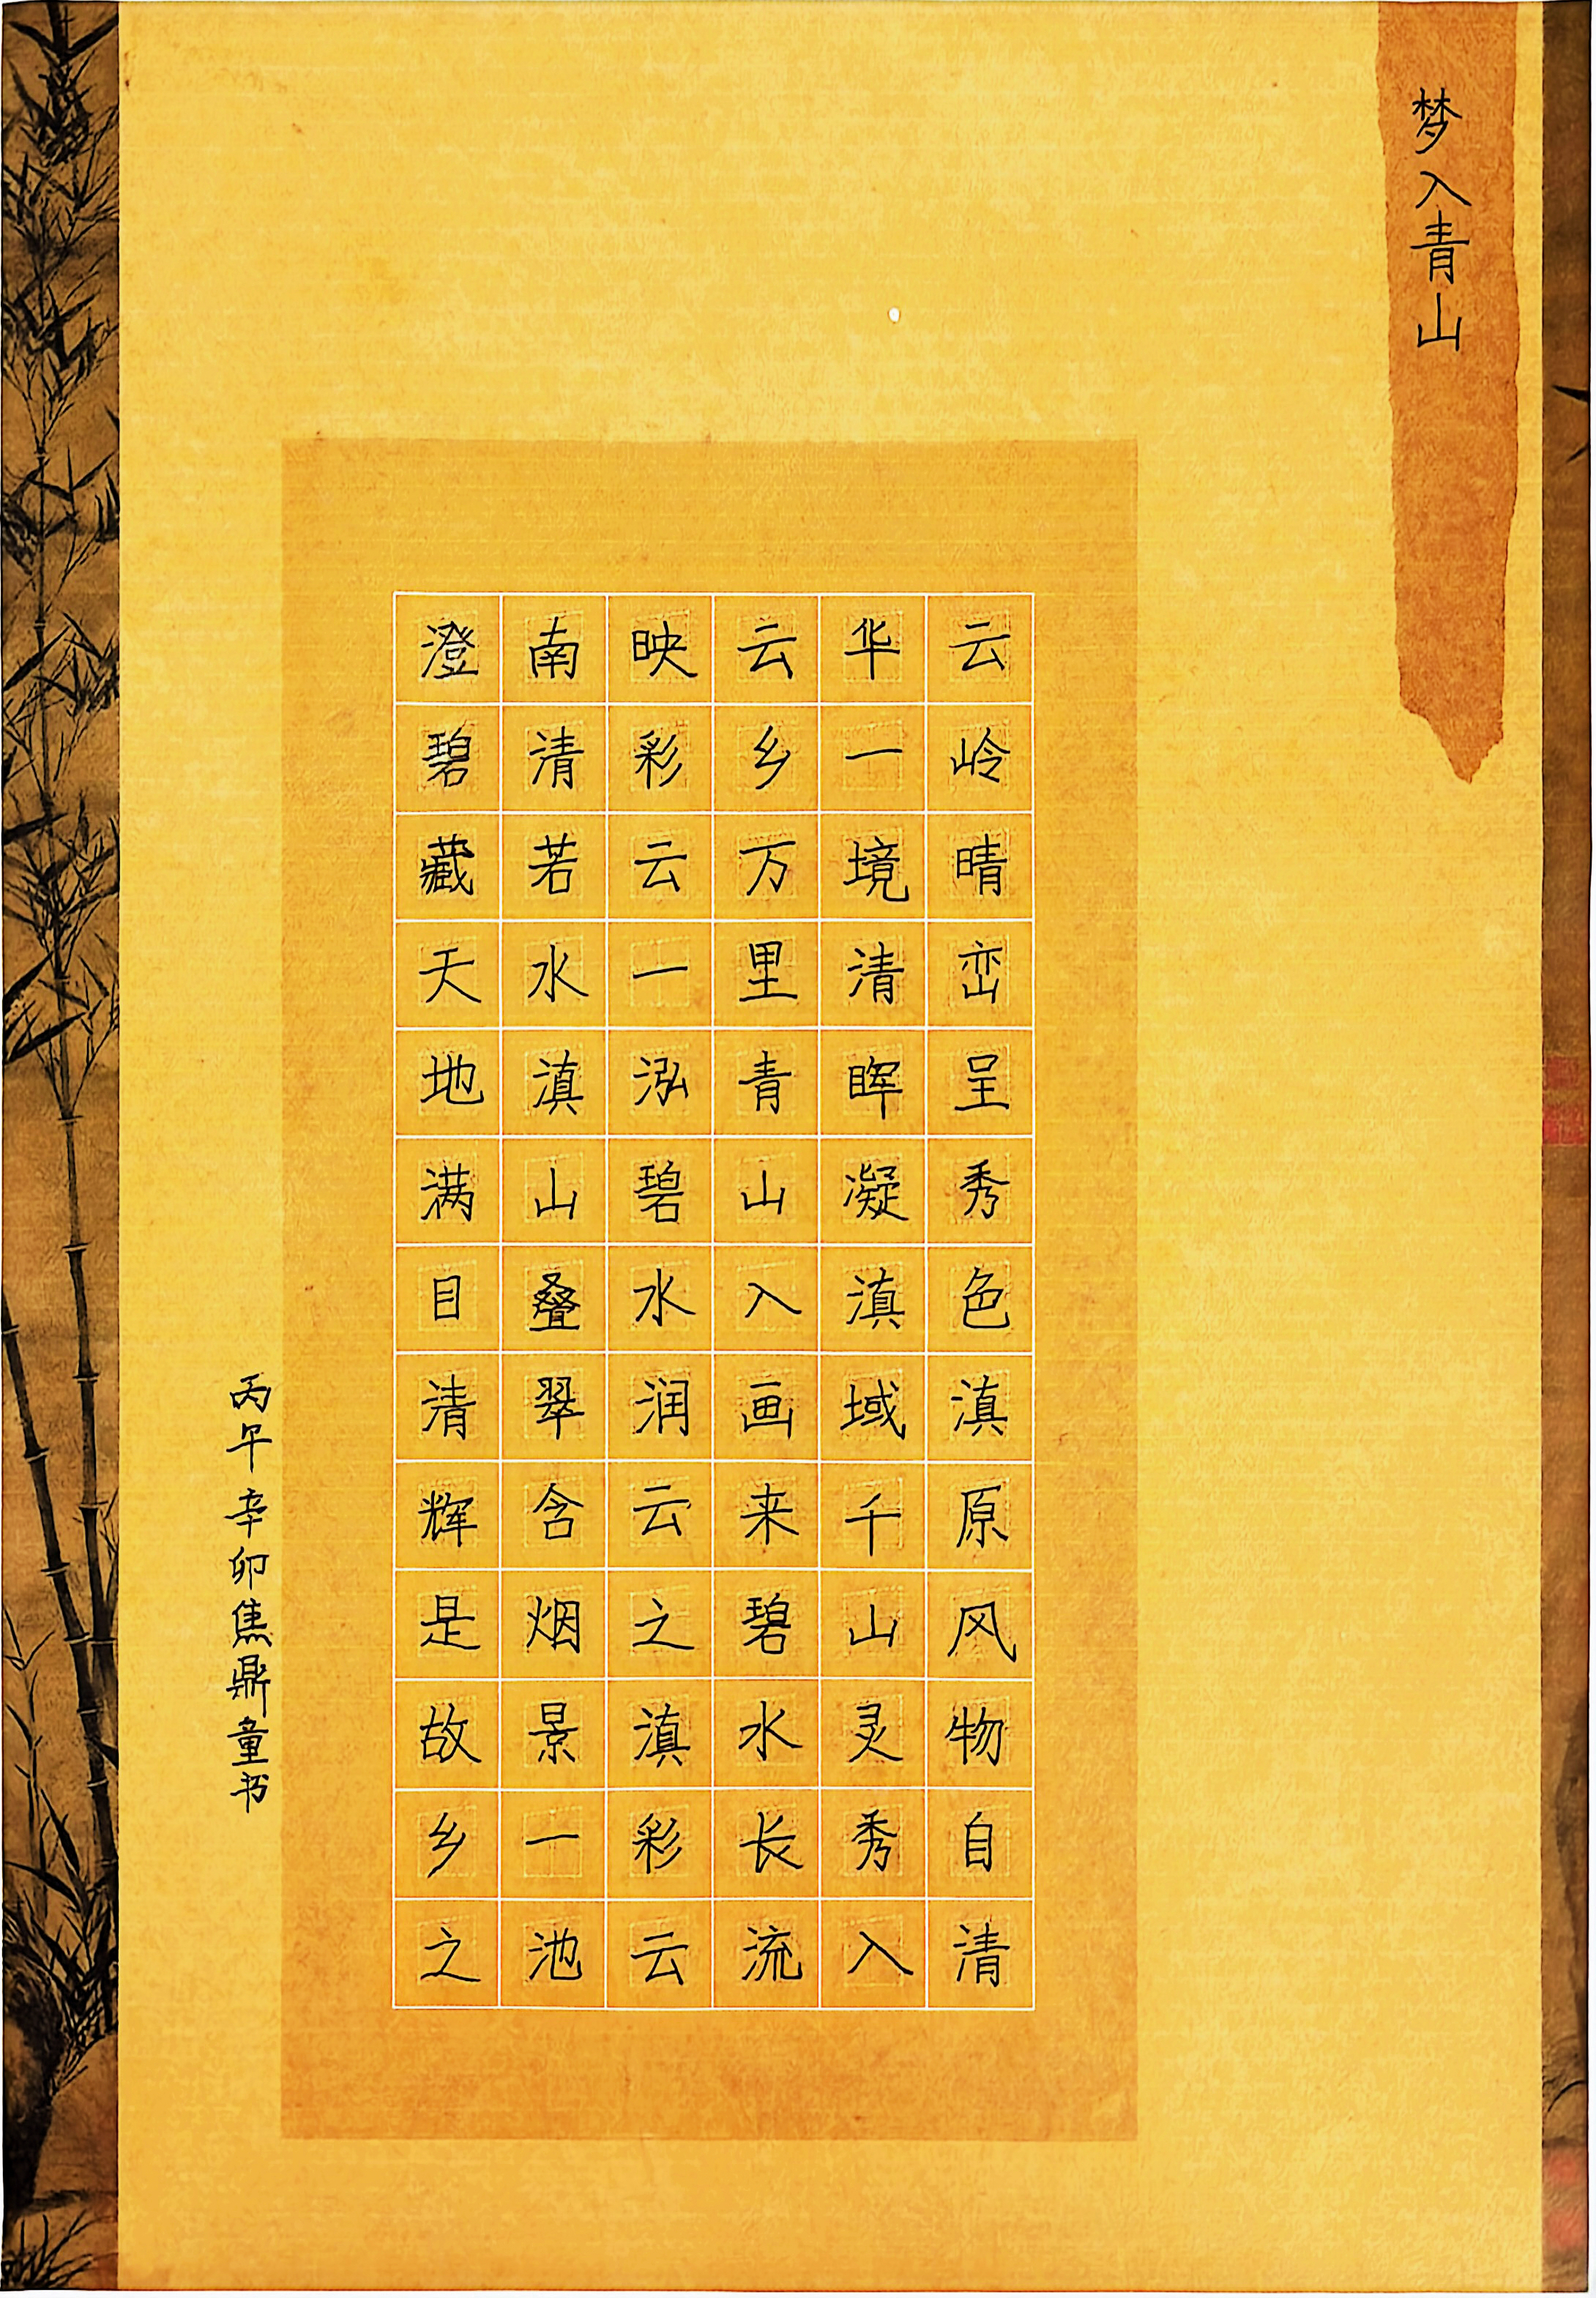 梦入青山
云岭晴峦呈秀色滇原风物自清
华一境清晖凝滇域千山灵秀入
云乡万里青山入画来碧水长流
映彩云一泓碧水润云之滇彩云
南清若水滇山叠翠含烟景一池
澄碧藏天地满目清辉是故乡之
丙午辛卯焦鼎童书